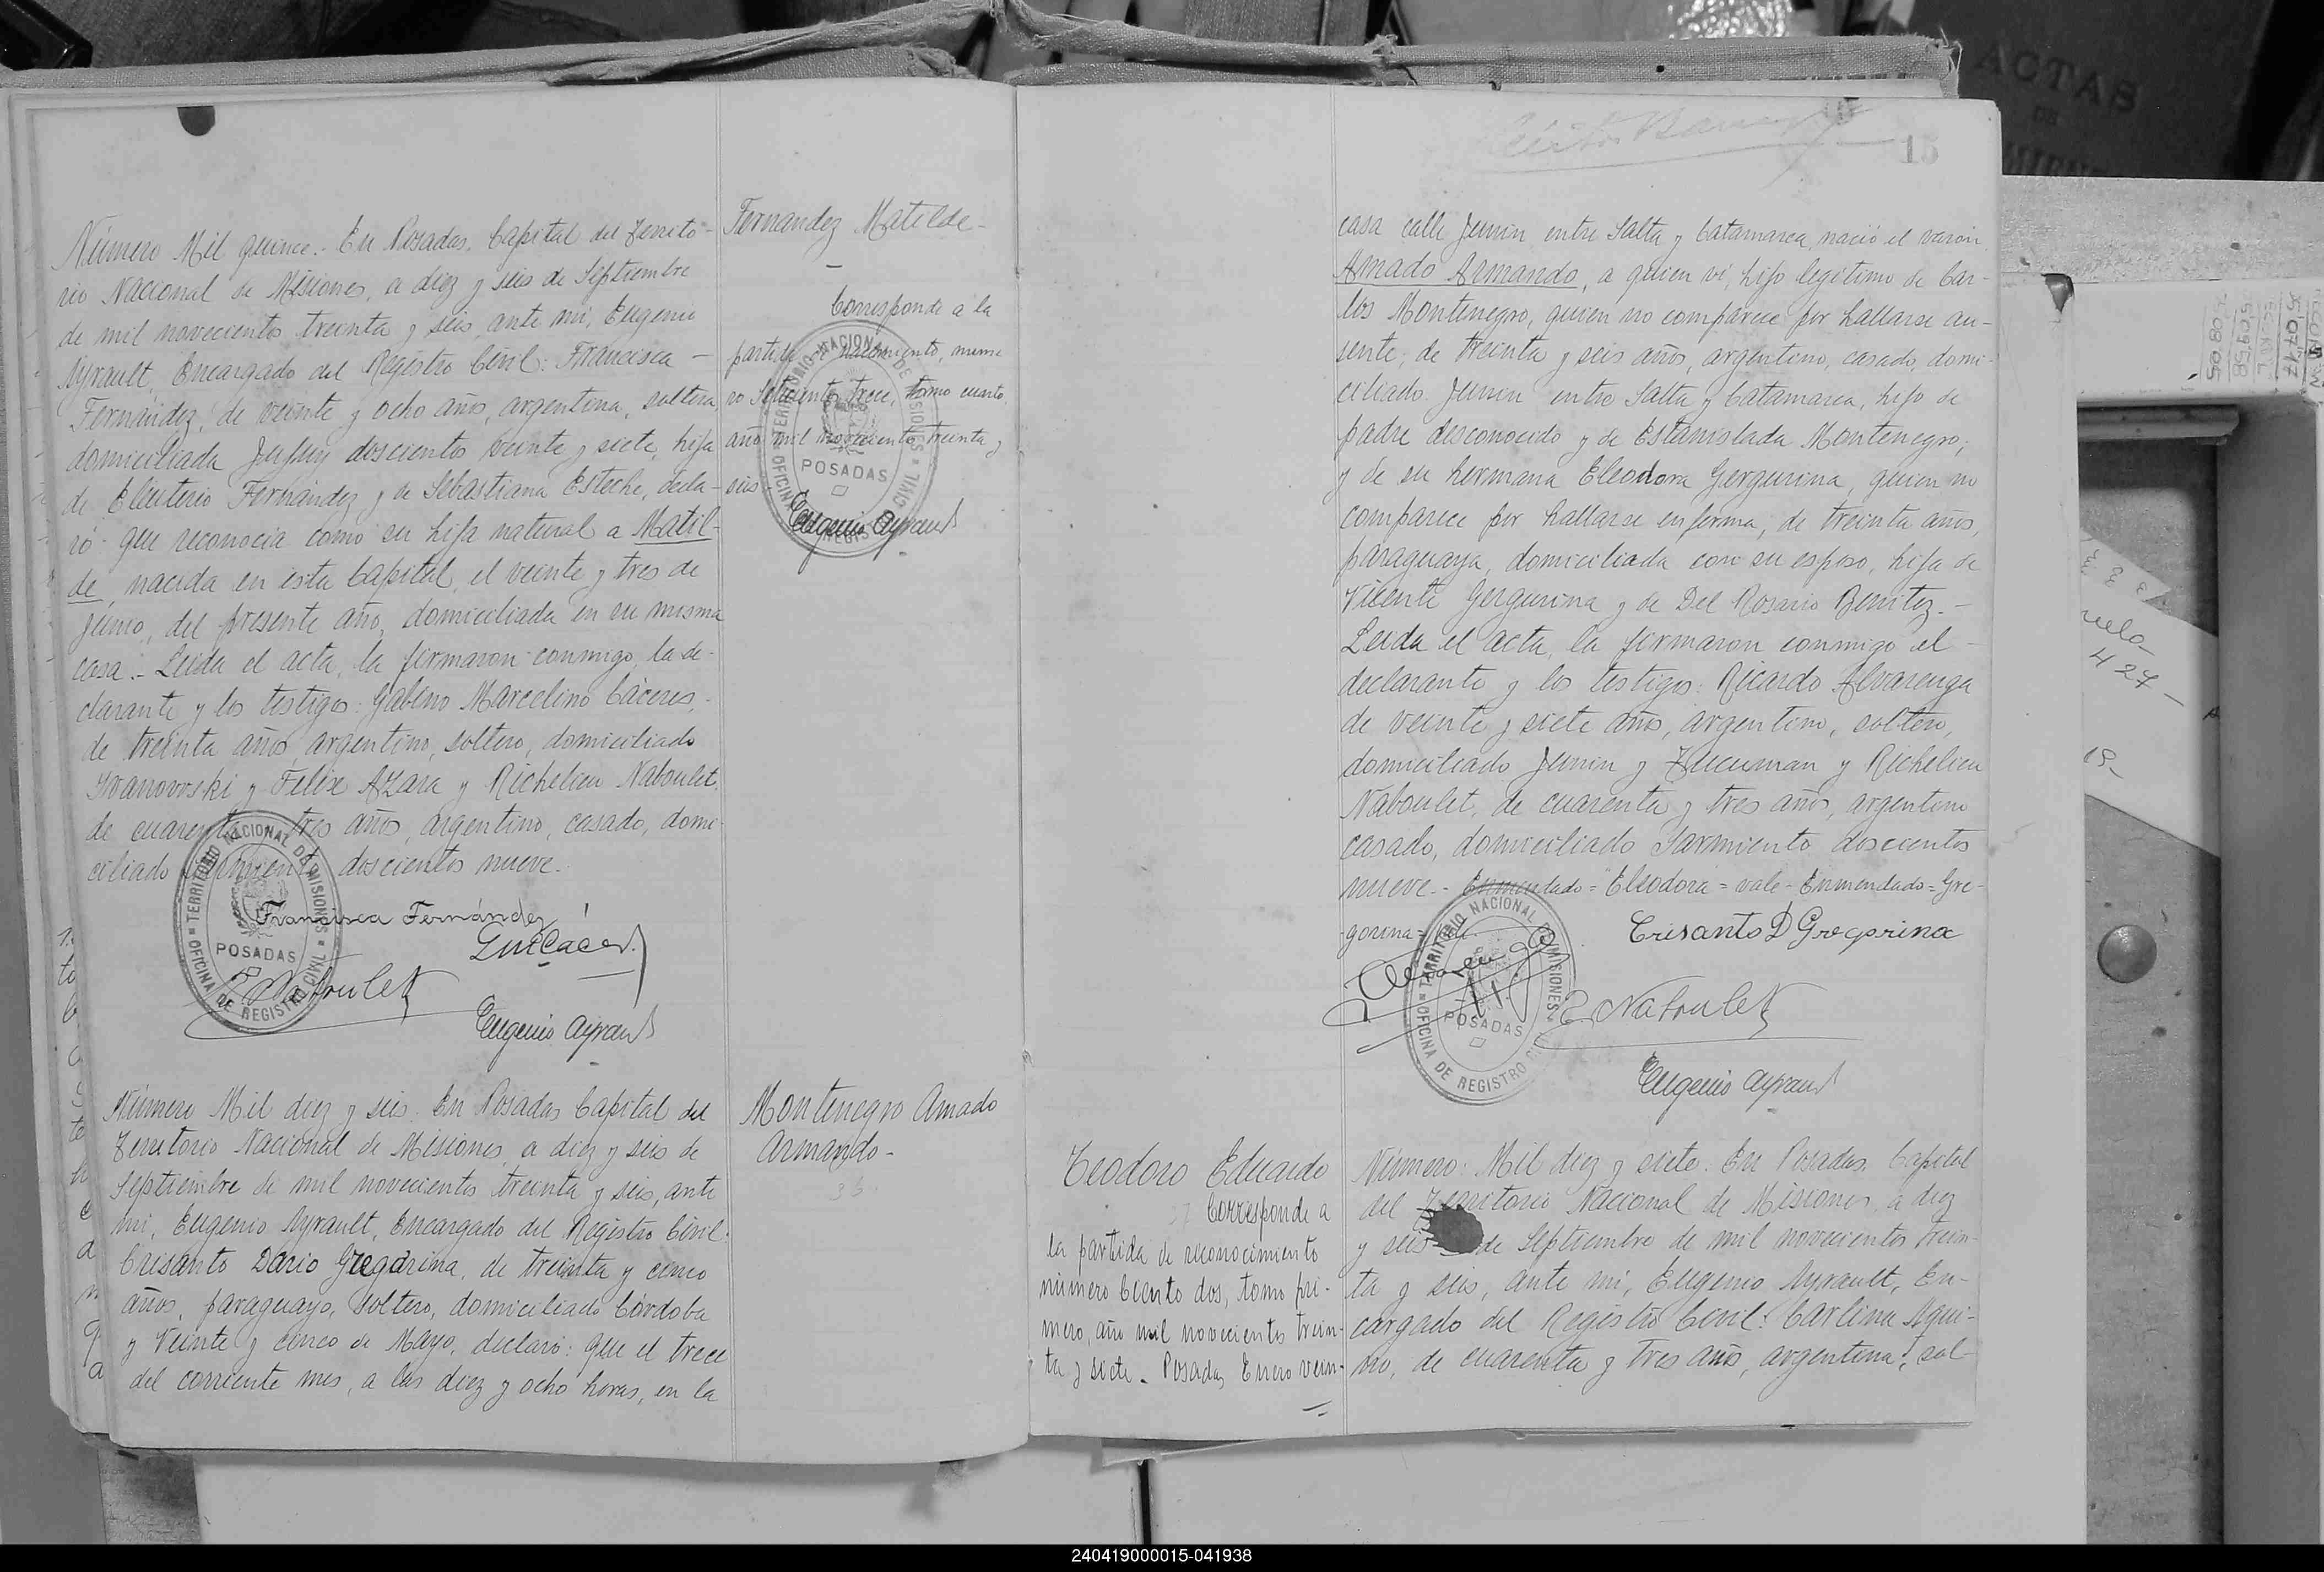 Número Mil quince.- En Posadas, Capital del Territo-
rio Nacional de Misiones, a diez y seis de Septiembre
de mil novecientos treinta y seis, ante mi, Eugenio
Ayrault, Encargado del Registro Civil: Francisca -
Fernández, de veinte y ocho años, argentina, soltera,
domiciliada Jujuy doscientos veinte y siete, hija
de Eleuterio Fernández y de Sebastiana Esteche, decla-
ró: que reconocia como su hija natural a Matil-
de, nacida en esta Capital, el veinte y tres de
Junio, del presente año, domiciliada en su misma
casa.- Leida el acta, la firmaron conmigo, la de-
clarante y los testigos: Gabino Marcelino Cáceres,-
de treinta años, argentino, soltero, domiciliado
Ivanovski y Felix Azara y Richelieu Naboulet,
de cuarenta y tres años, argentino, casado, domi-
ciliado Sarmiento doscientos nueve.-
Francisca Fernández
R. Naboulet
Eugenio Ayrault
TERRITORIO NACIONAL DE MISIONES
POSADAS
OFICINA DE REGISTRO CIVIL
Fernandez Matilde-
Corresponde a la
partida de nacimiento, nume-
ro Setecientos trece, tomo cuarto,
año mil novecientos treinta y
seis
Eugenio Ayrault
TERRITORIO NACIONAL DE MISIONES
POSADAS
OFICINA DE REGISTRO CIVIL
Número Mil diez y seis: En Posadas Capital del
Territorio Nacional de Misiones, a diez y seis de
Septiembre de mil novecientos treinta y seis, ante
mi, Eugenio Ayrault, Encargado del Registro Civil:
Crisanto Dario Gregorina, de treinta y cinco
años, paraguayo, soltero, domiciliado Córdoba
y Veinte y cinco de Mayo, declaró: que el trece
del corriente mes, a las diez y ocho horas, en la
Montenegro Amado
Armando-
15
casa calle Junin entre Salta y Catamarca, nació el varón
Amado Armando, a quien vi, hijo legitimo de Car-
los Montenegro, quien no comparece por hallarse au-
sente; de treinta y seis años, argentino, casado, domi-
ciliado Junin entre Salta y Catamarca, hijo de
padre desconocido y de Estanislada Montenegro;
y de su hermana Eleodora Gergurina, quien no
comparece por hallarse enferma, de treinta años,
paraguaya, domiciliada con su esposo, hija de
Vicente Gergurina y de Del Rosario Benitez.-
Leida el acta, la firmaron conmigo el -
declarante y los testigos: Ricardo Alvarenga
de veinte y siete años, argentino, soltero,
domiciliado Junin y Tucuman y Richelieu
Naboulet, de cuarenta y tres años, argentino
casado, domiciliado Sarmiento doscientos
nueve.- Enmendado="Eleodora=vale-Enmendado=Gre-
gorina=vale.
Crisanto D Gregorina
Alvarenga
R. Naboulet
Eugenio Ayrault
TERRITORIO NACIONAL DE MISIONES
POSADAS
OFICINA DE REGISTRO CIVIL
Teodoro Eduardo
Corresponde a
la partida de reconocimiento
número Ciento dos, tomo pri-
mero, año mil novecientos trein-
ta y siete. Posadas, Enero vein-
Número: Mil diez y siete: En Posadas, Capital
del Territorio Nacional de Misiones, a diez
y seis de Septiembre de mil novecientos trein-
ta y seis, ante mi, Eugenio Ayrault, En-
cargado del Registro Civil: Carlina Aqui-
no, de cuarenta y tres años, argentina, sol-
ACTAS
427
240419000015-041938